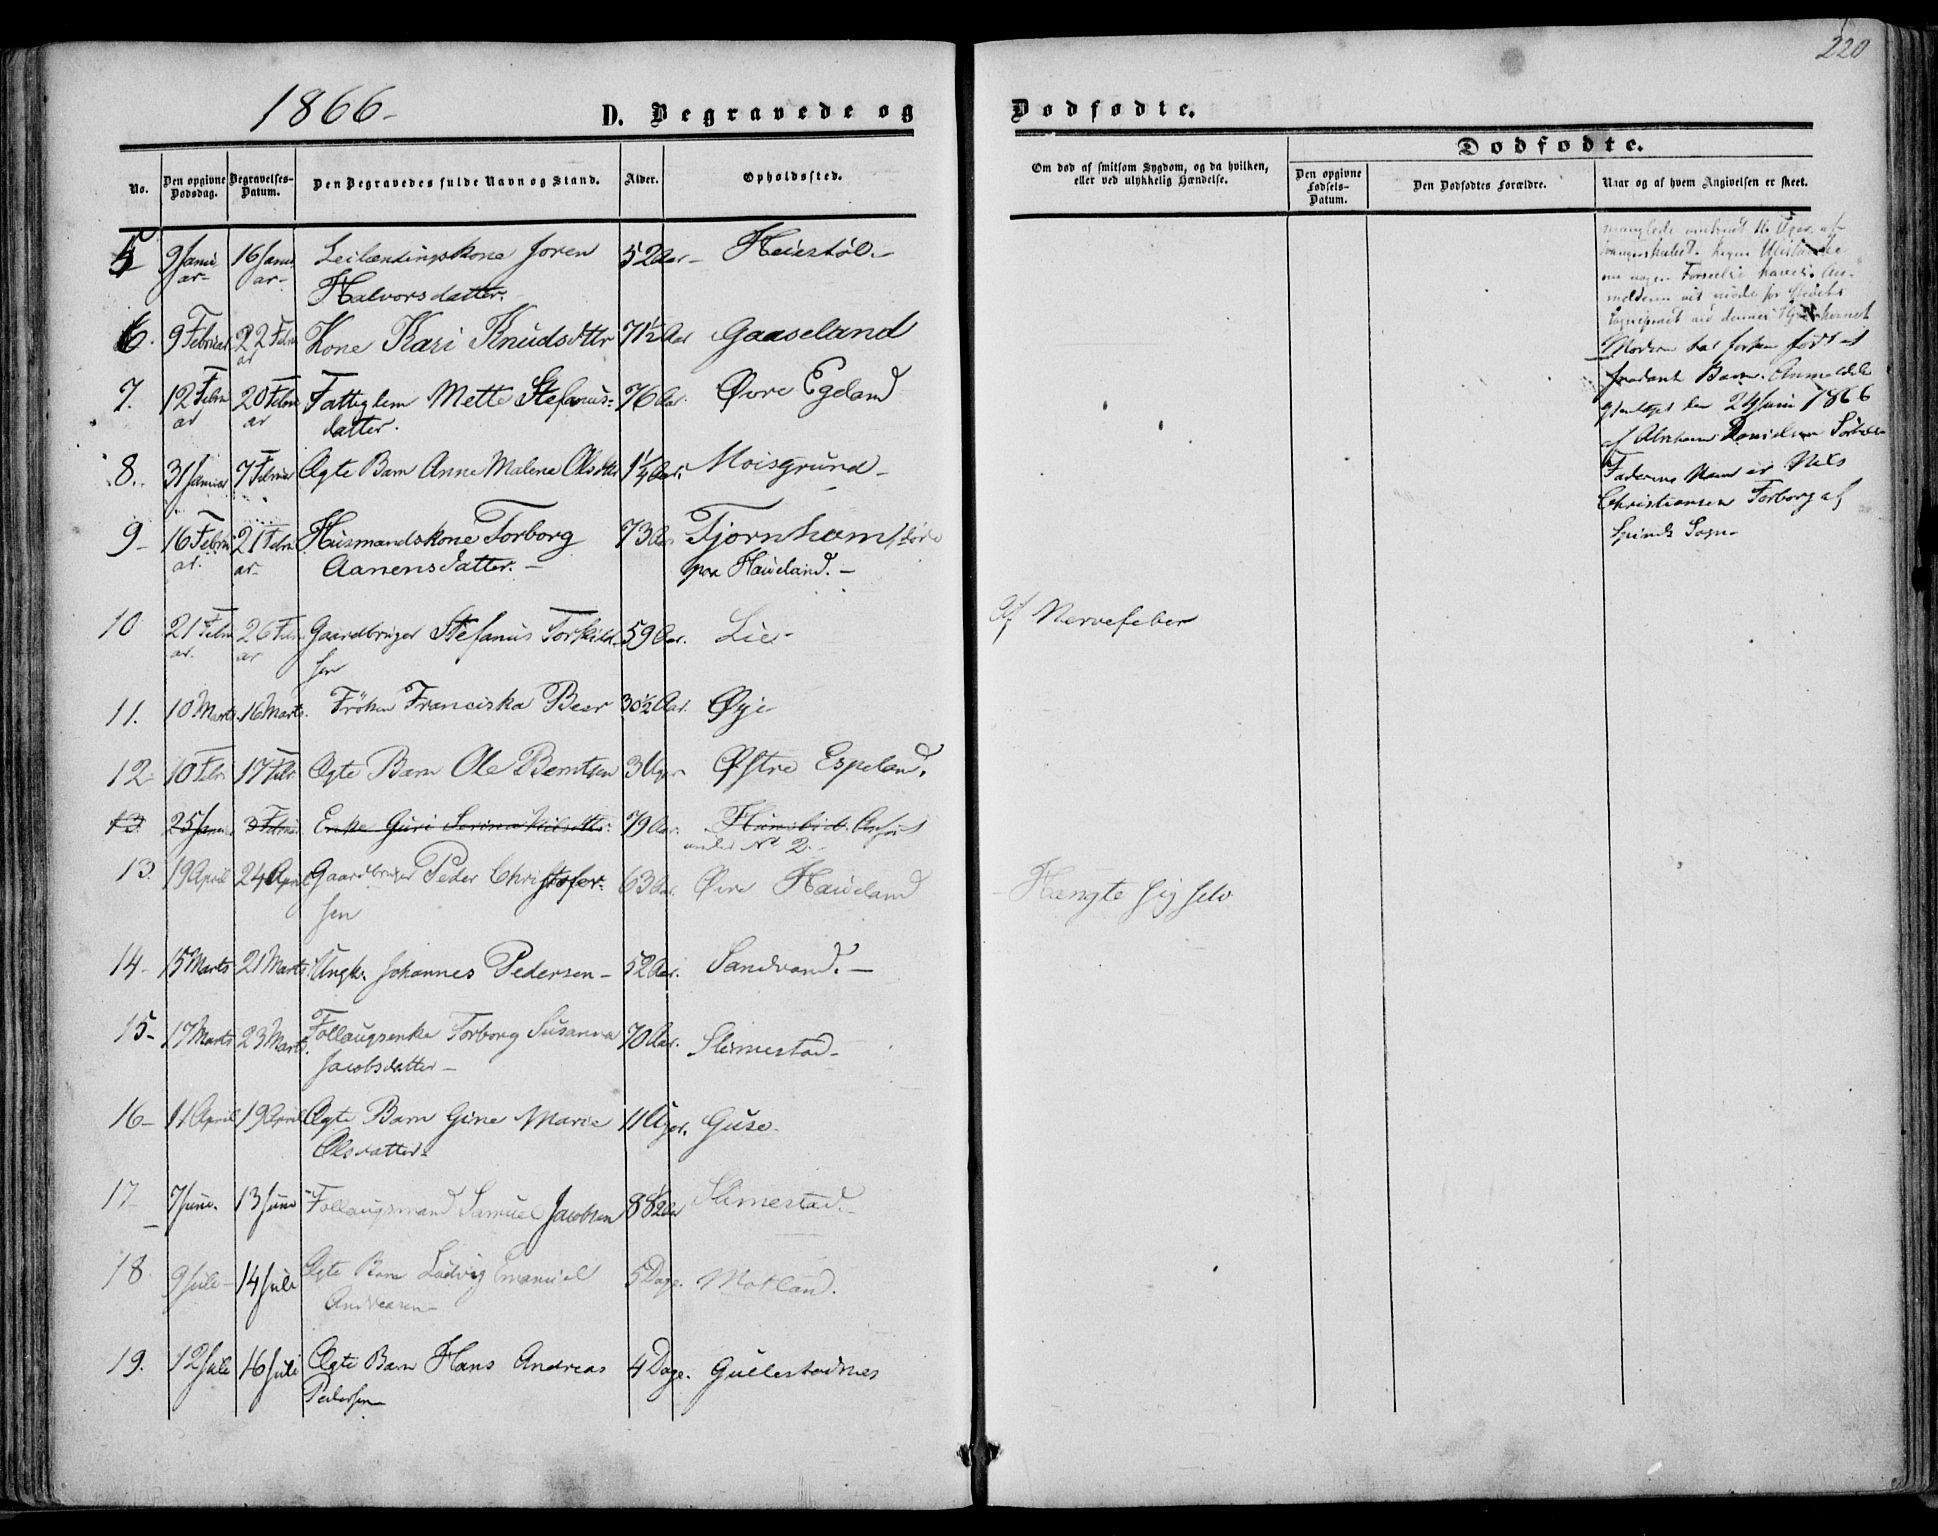 220
1866-
D. Begravede og
Dødfødte.
No.
Den opgivne Dødsdag.
Begravelses-Datum.
Den Begravedes fulde Navn og Stand.
Alder.
Opholdssted.
Om død af smitsom Sygdom, og da hvilken, eller ved ulykkelig Hændelse.
Dødfødte.
Den opgivne Fødsels-Datum.
Den Dødfødtes Forældre.
Naar og af hvem Angivelsen er skeet.
5 9 Janu 16 Janu Leilændingskone Joren 52 Aar- Heiestøl.-
ar- ar- Halvorsdatter.
6. 9 Februar 22 Febru Kone Kari Knudsdttr 71½ Aar Gaaseland
ar
7. 12 Febru 20 Febru Fattiglem Mette Stefanus- 76 Aar. Øvre Egeland
ar ar datter.
8. 31 Januar 7 Februar Ægte Barn Anne Malene Olsdttr 1¼ Aar. Moisgrund-
9- 16 Febru 21 Febru Husmandskone Torborg 73 Aar Tjørnham
ar. ar- Aanensdatter.- paa Haueland.-
10 21 Febru 26 Febru Gaardbruger Stefanus Torkild- 59 Aar. Lie-
ar. ar sen
Af Nervefeber
11. 10 Marts. 16 Marts. Frøken Franciska Beer 30½ Aar. Øye
12- 10 Febr 17 Febr Ægte Barn Ole Berntsen 3 Uger Østre Espeland.
13 25 Janu 3 Febru Enke Guri Serina Nilsdttr: 79 Aar. Anført
under No 2.-
13. 19 April 24 April Gaardbruger Peder Christofer- 63 Aar. Øvre Haueland
sen
- Hængte sig selv
14- 15 Marts 21 Marts Ungk. Johannes Pedersen- 52 Aar. Sandvand.-
15- 17 Marts 23 Marts. Følaugsenke Torborg Susanna 70 Aar. Slimestad-
Jacobsdatter-
16- 11 April 19 April Ægte Barn Gine Marie 11 Uger. Guse-
Olsdatter-
17- 7 Juni. 13 Juni Follaugsmand Samuel Jacobsen 88½ Aar Slimestad.-
18. 9 Juli- 14 Juli Ægte Barn Ludvig Emanuel 5 Dage. Motland.
Andreasen-
19. 12 Juli 16 Juli Ægte Barn Hans Andreas 4 Dage. Gullestadnes
Pedersen
Moderen har forhen født et
Barn. Anmeldelse
den 24 Juni 1866
af Abraham Danielsen
Faderens Navn er Nils
Christiansen Forborg af
Spinds Sogn-